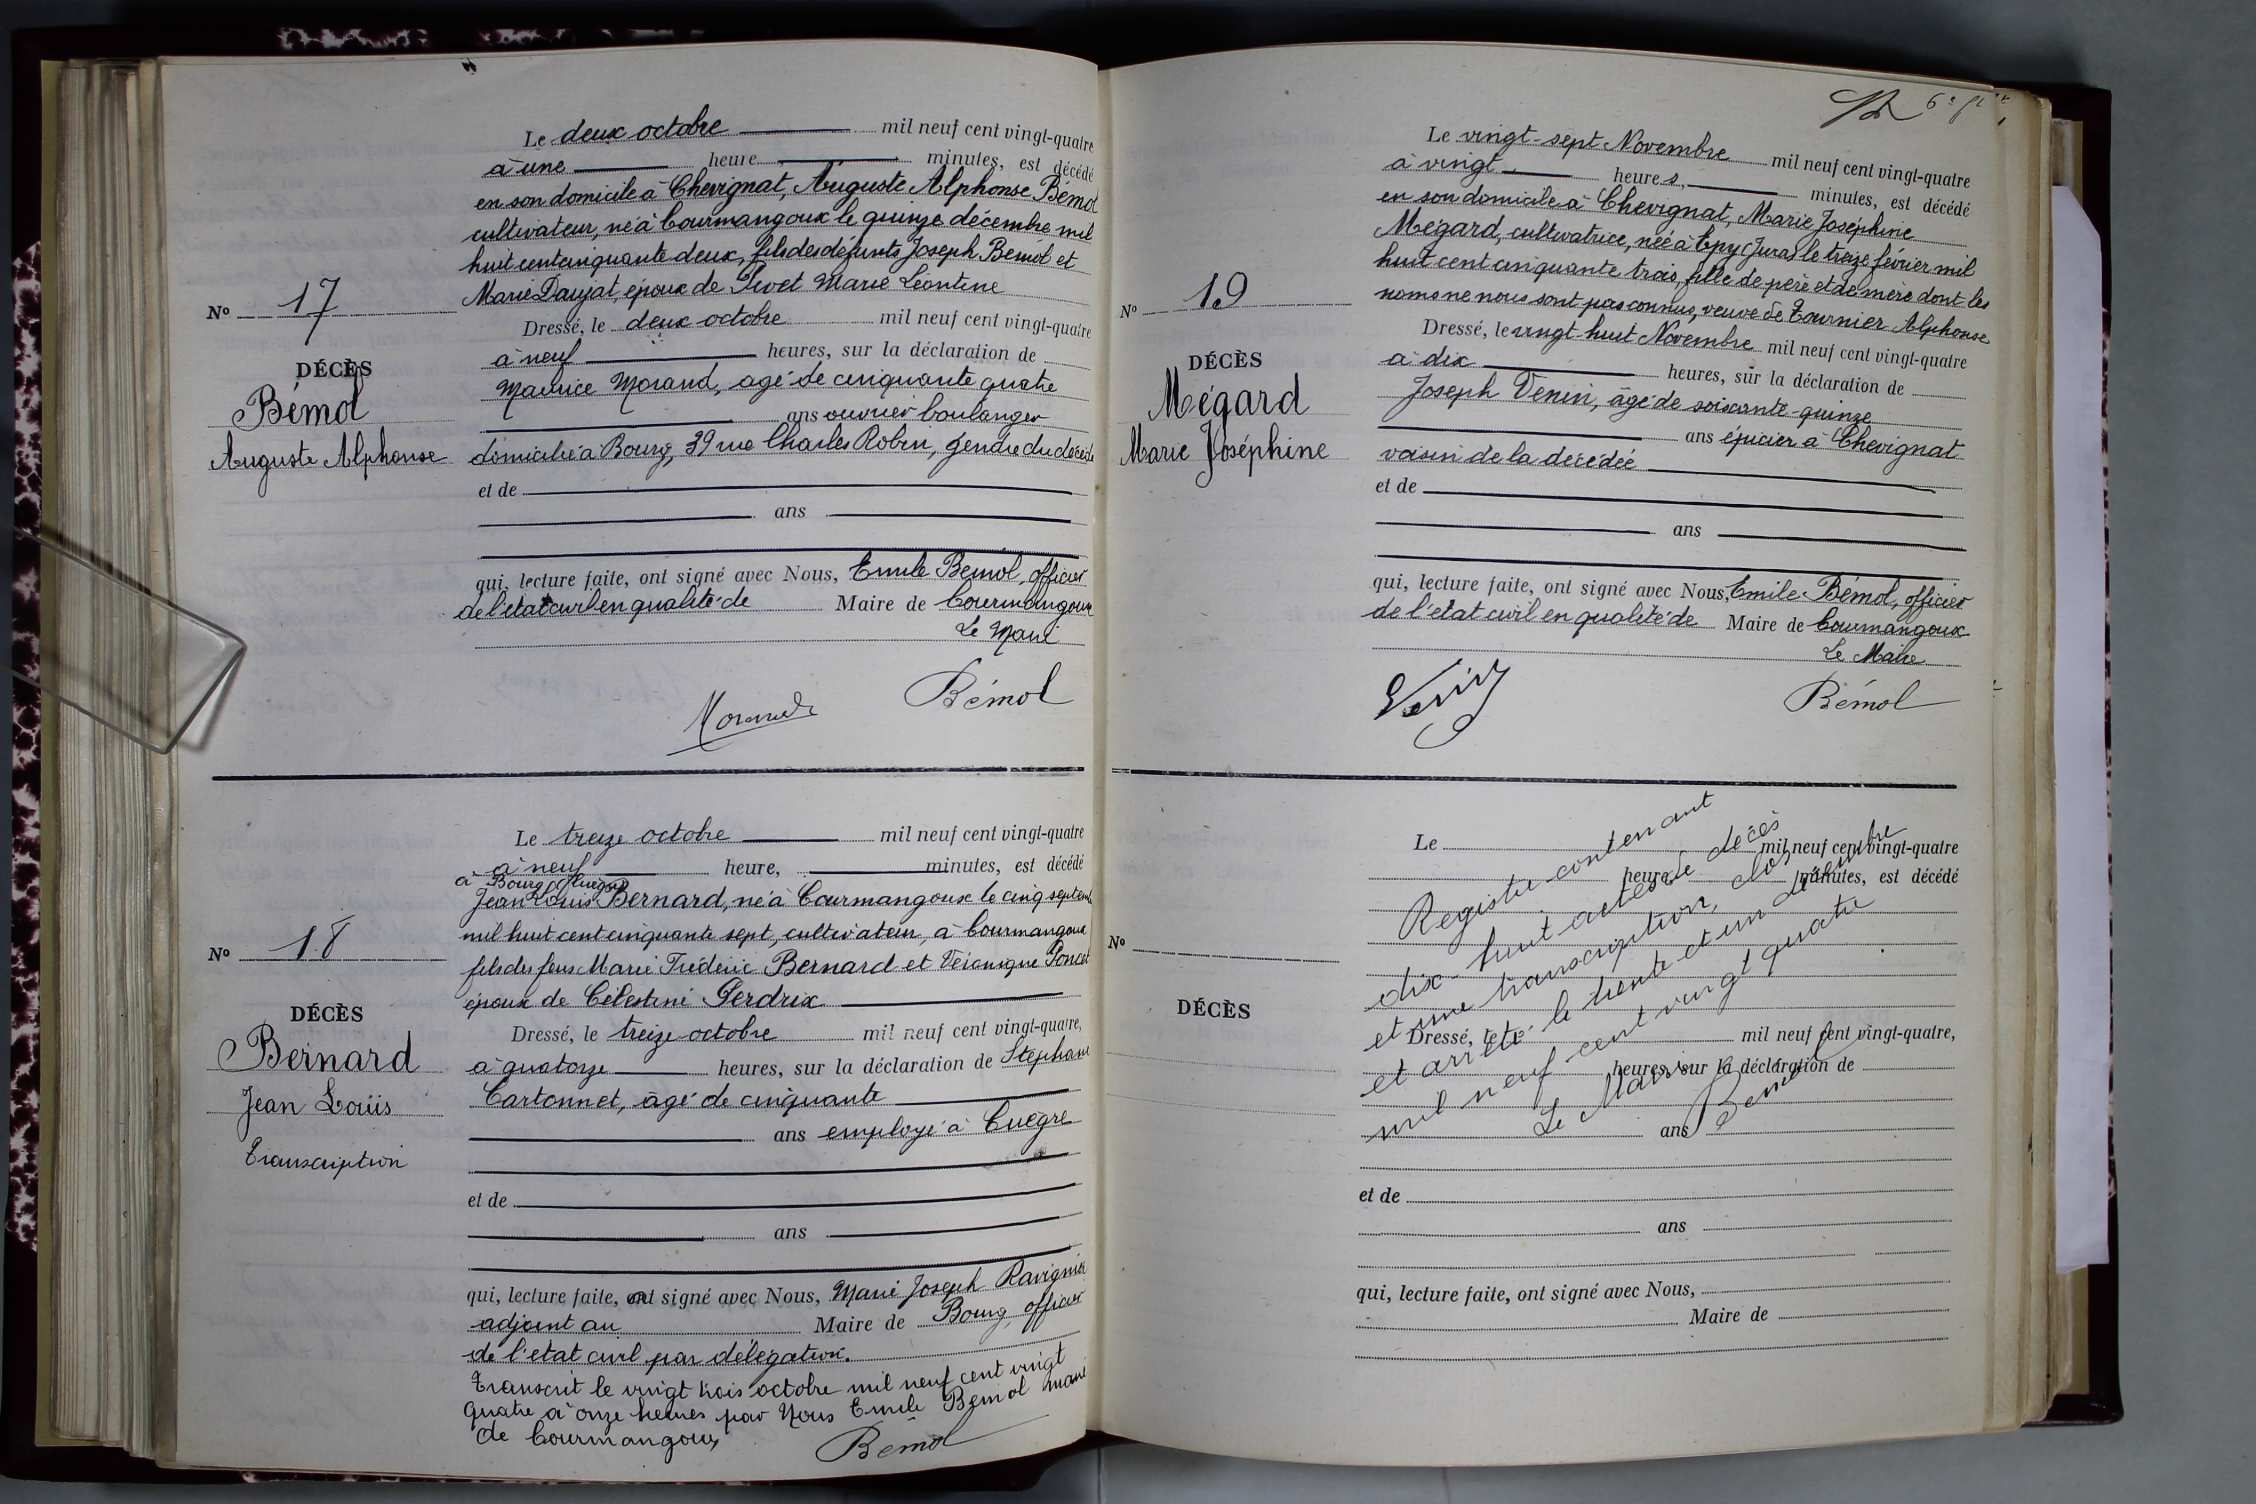 Le deux octobre mil neuf cent vingt-quatre
à une heure minutes, est décédé
en son domicile à Chevignat, Auguste Alphonse Bémol
cultivateur, né à Courmangoux le quinze décembre mil
huit cent cinquante deux, fils des défunts Joseph Bémol et
Marie Daujat, époux de Pivet Marie Léontine
No 17
Dressé, le deux octobre mil neuf cent vingt-quatre
à neuf heures, sur la déclaration de
DÉCÈS
Maurice Morand, agé de cinquante quatre
Bémol
ans ouvrier boulanger
Auguste Alphonse
domicilié à Bourg, 39 rue Charles Robin, gendre du décédé
et de
ans
qui, lecture faite, ont signé avec Nous, Emile Bémol, officier
de l'état civil en qualité de Maire de Courmangoux
Le Maire
Morand Bémol
Le treize octobre mil neuf cent vingt-quatre
à neuf heure, minutes, est décédé
à Bourg
Jean Louis Bernard, né à Courmangoux le cinq septem
mil huit cent cinquante sept, cultivateur, à Courmangoux
No 18
fils des feus Marie Frédéric Bernard et Véronique Poncet
époux de Célestine Perdrix
DÉCÈS
Dressé, le treize octobre mil neuf cent vingt-quatre,
Bernard
à quatorze heures, sur la déclaration de Stéphane
Jean Louis
Cartonnet, âgé de cinquante
ans employé à Cuègre
Transcription
et de
ans
qui, lecture faite, ont signé avec Nous, Marie Joseph Ravignier
adjoint au Maire de Bourg, officier
de l'état civil par délégation.
Transcrit le vingt trois octobre mil neuf cent vingt
quatre à onze heures par Nous Emile Bémol maire
de Courmangoux
Bémol
Le vingt-sept Novembre mil neuf cent vingt-quatre
à vingt heures, minutes, est décédé
en son domicile à Chevignat, Marie Joséphine
Mégard, cultivatrice, née à Epy (Jura) le treize février mil
huit cent cinquante trois, fille de père et de mère dont les
noms ne nous sont pas connus, veuve de Tournier Alphonse
No 19
Dressé, le vingt huit Novembre mil neuf cent vingt-quatre
à dix heures, sur la déclaration de
DÉCÈS
Joseph Venin, âgé de soixante-quinze
Mégard
ans épicier à Chevignat
Marie Joséphine
voisin de la décédée
et de
ans
qui, lecture faite, ont signé avec Nous, Emile Bémol, officier
de l'état civil en qualité de Maire de Courmangoux
Le Maire
Venin Bémol
Le mil neuf cent vingt-quatre
heure minutes, est décédé
No
DÉCÈS
Dressé, le mil neuf cent vingt-quatre,
heures, sur la déclaration de
ans
et de
ans
qui, lecture faite, ont signé avec Nous,
Maire de
Registre contenant
dix-huit actes de décès
et une transcription, clos
et arrêté le trente et un décembre
mil neuf cent vingt quatre
Le Maire
Bémol